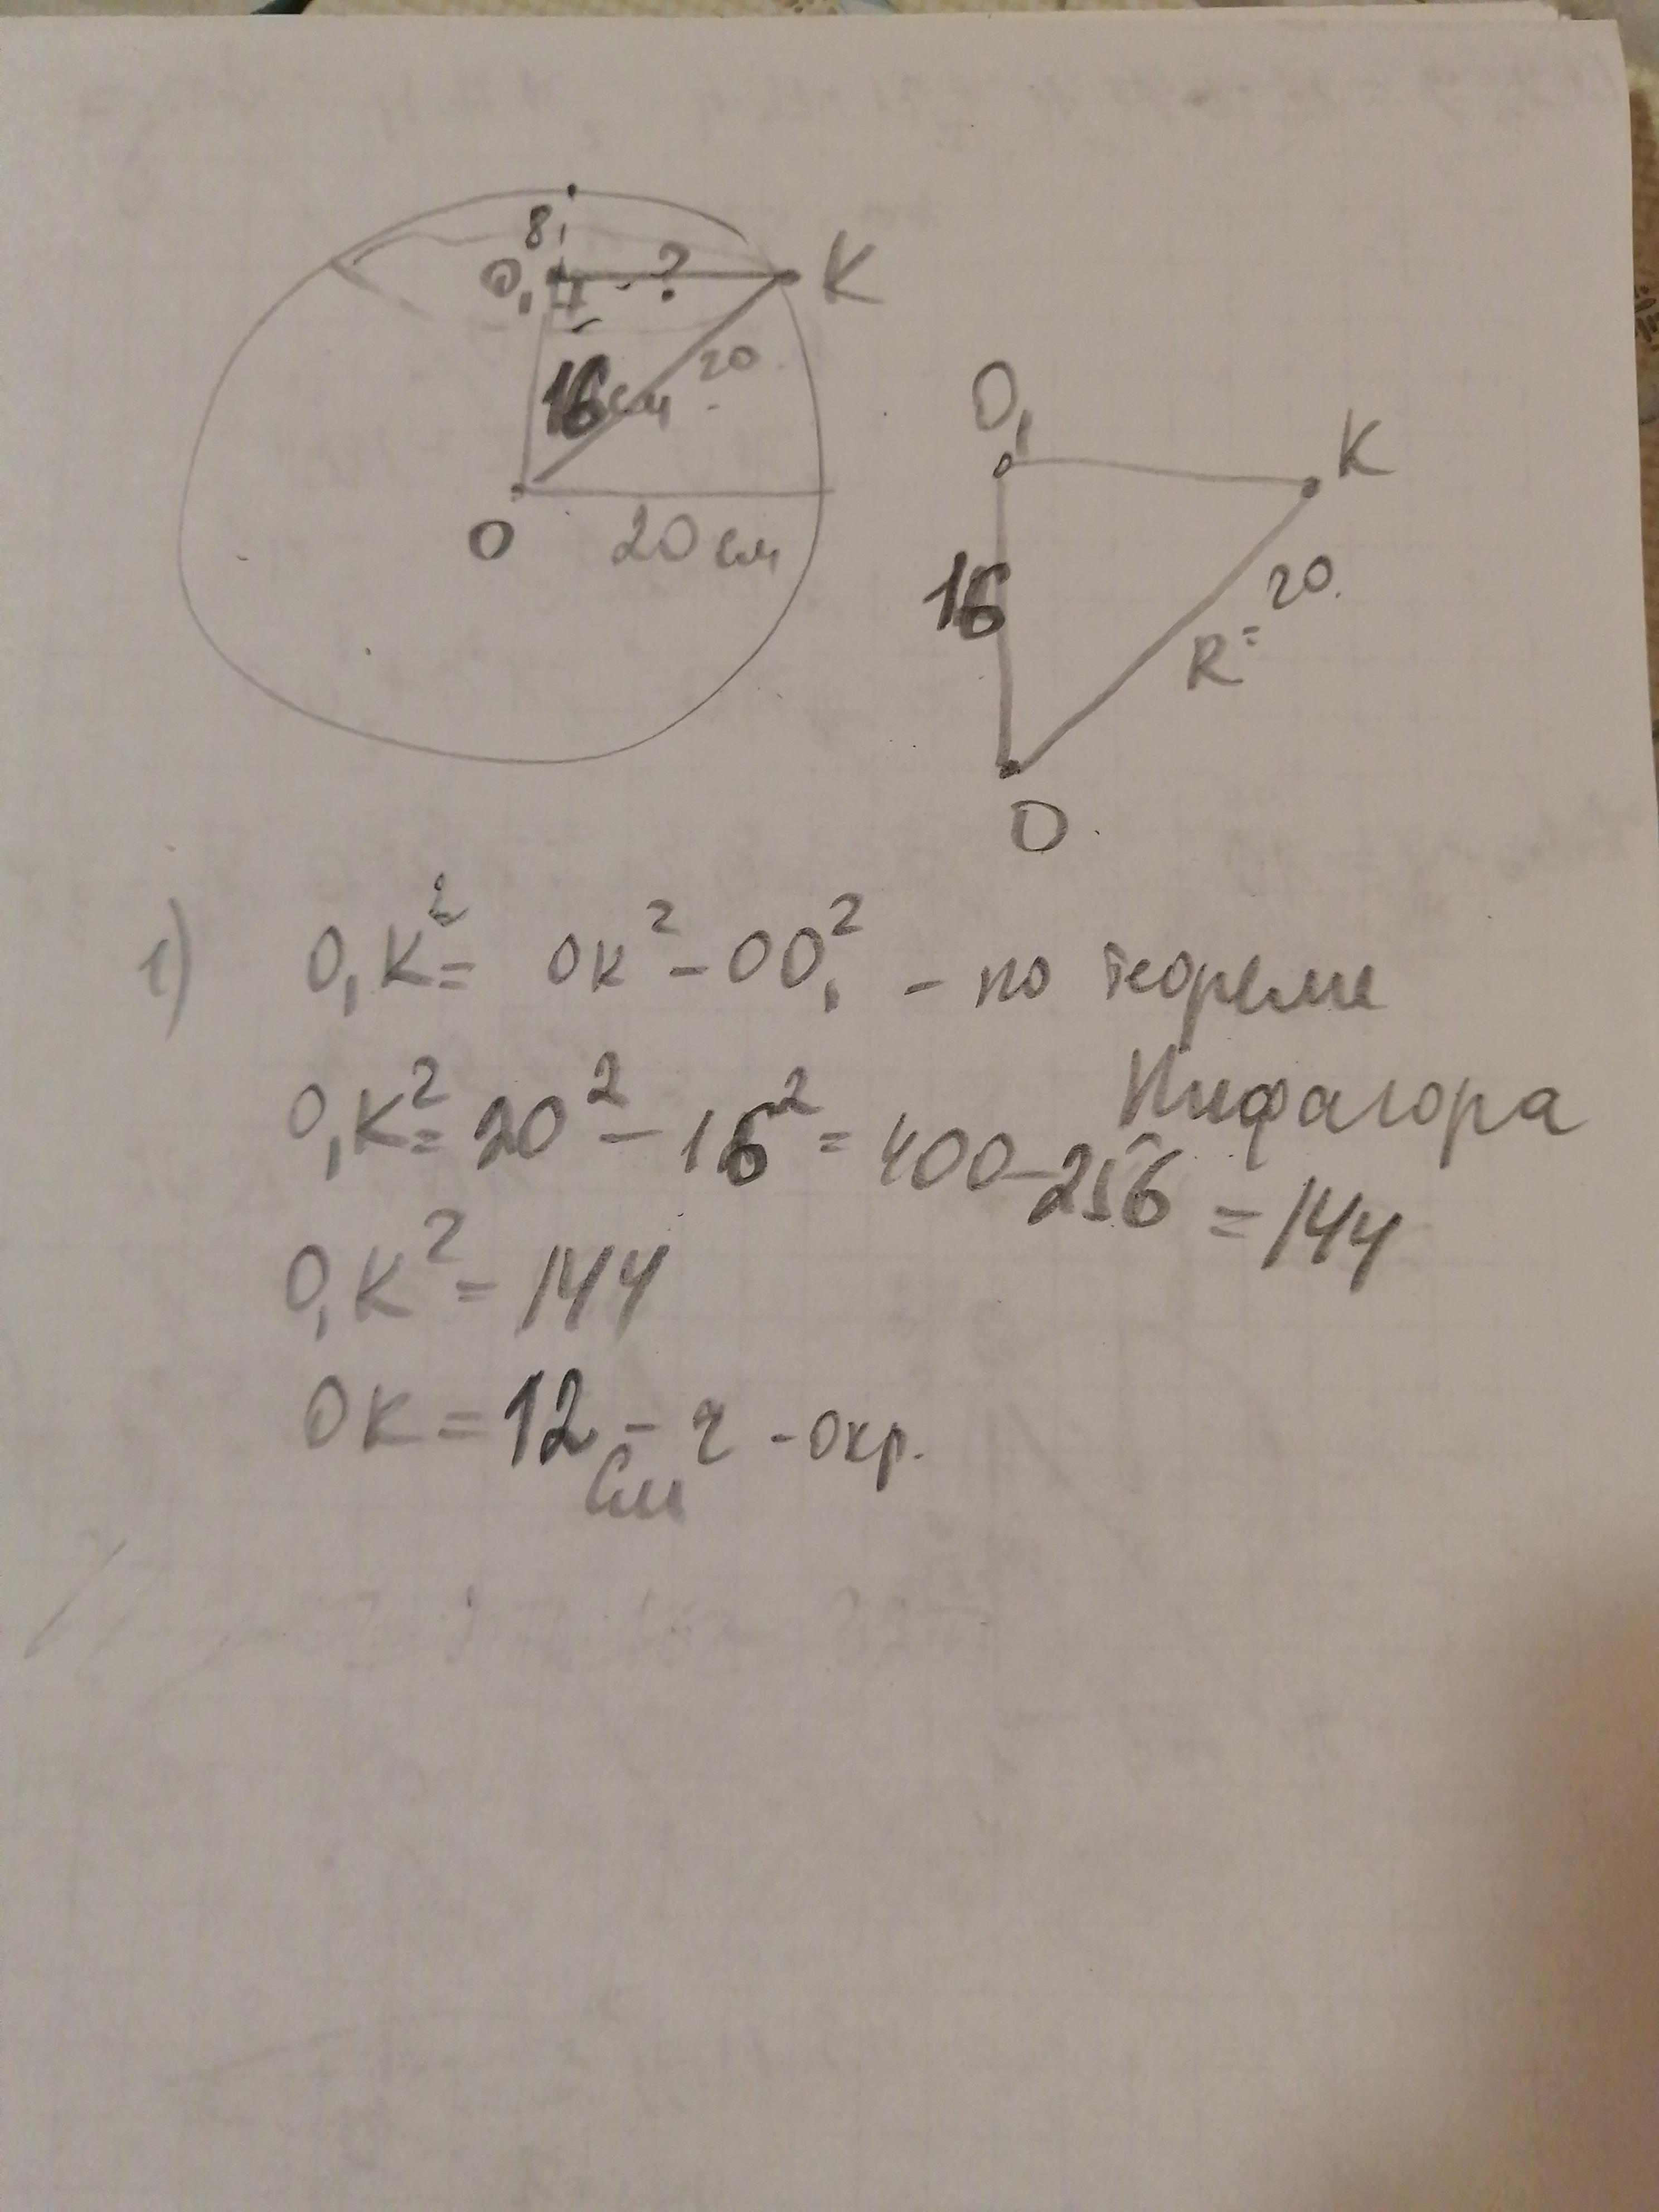 8
O₁ ? K
16 см 20
O 20 см
O₁ K
16 R = 20.
O
1) O₁K² = OK² - OO₁² - по теореме
Пифагора
O₁K² = 20² - 16² = 400 - 256 = 144
O₁K² = 144
OK = 12 см - r - окр.